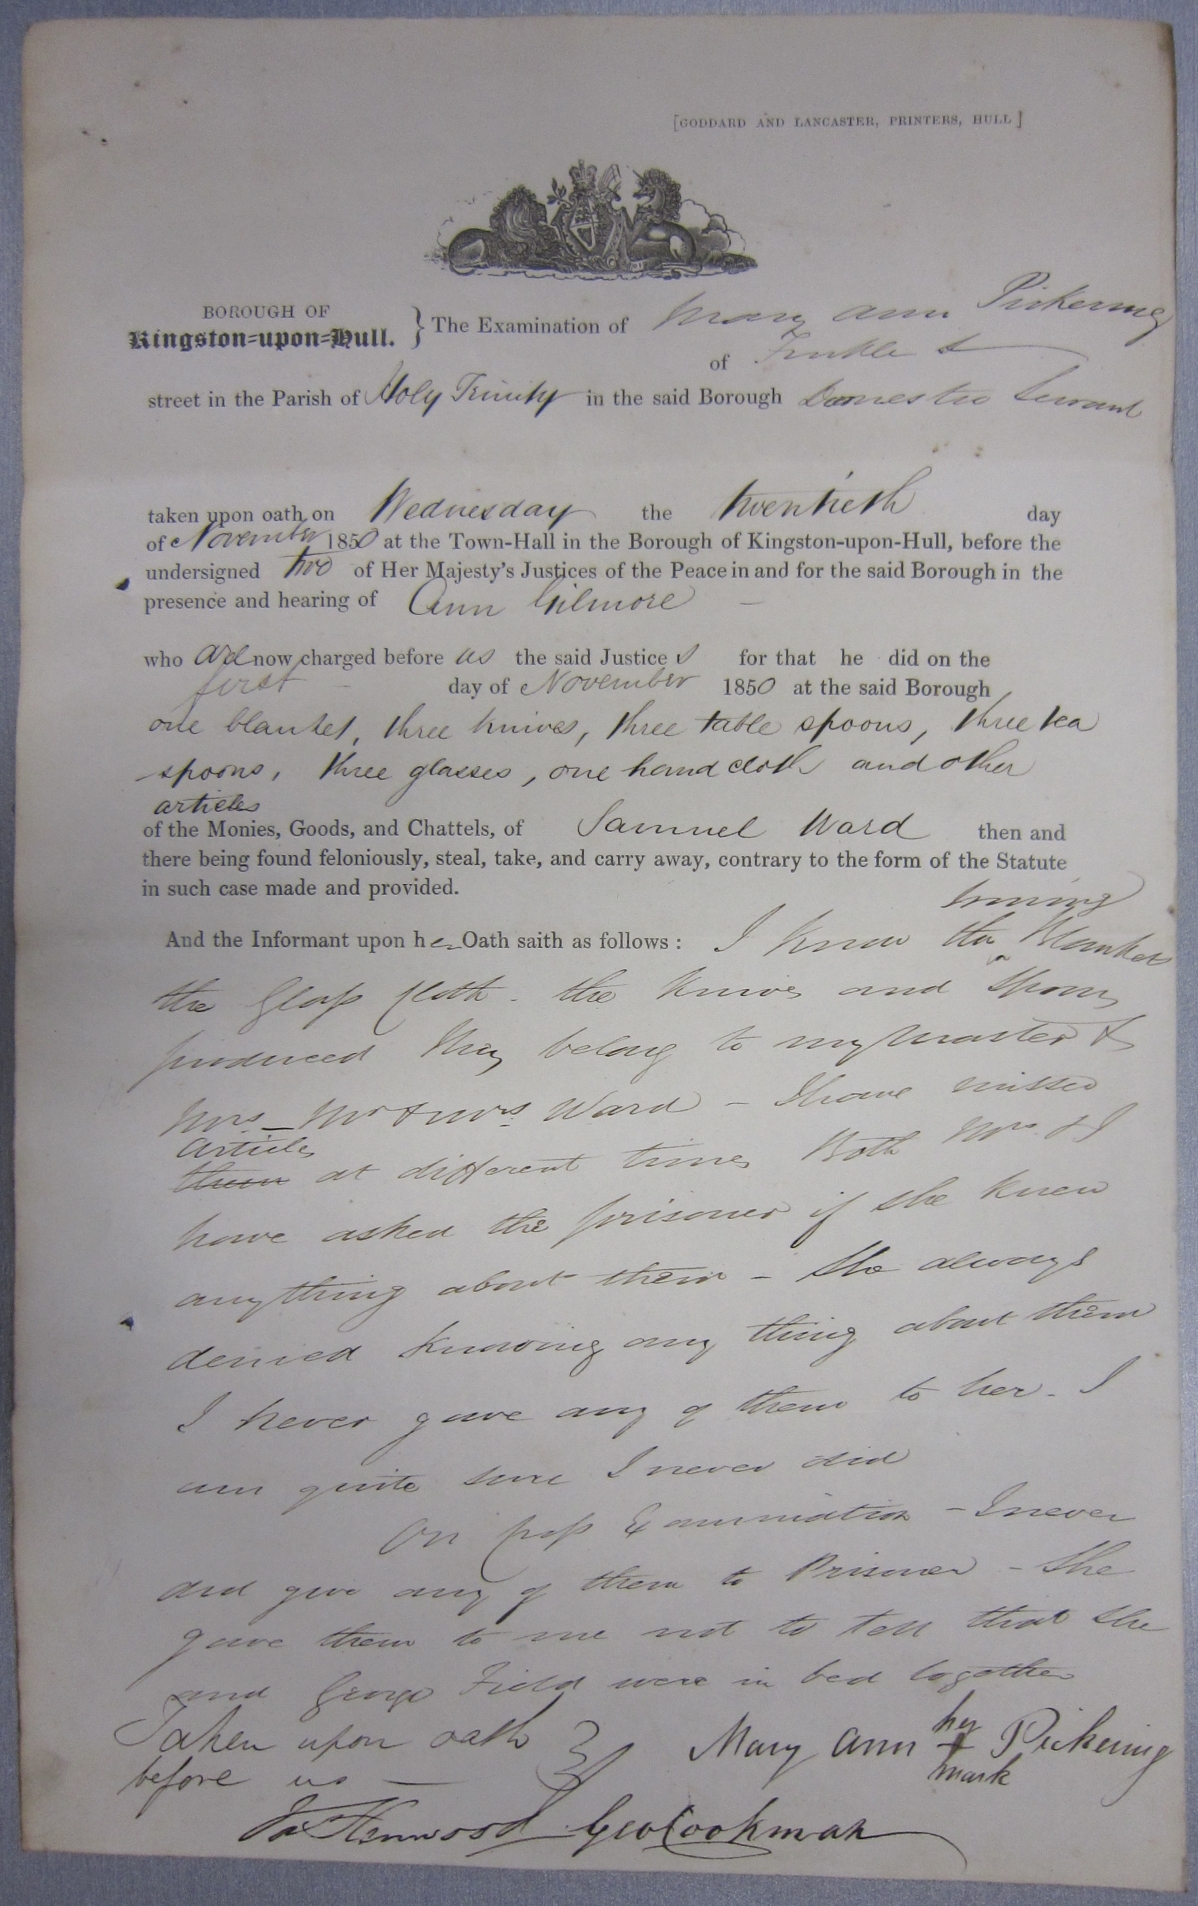 [GODDARD AND LANCASTER, PRINTERS, HULL]
BOROUGH OF
Kingston=upon=Hull. } The Examination of Mary Ann Pickering
of Finkle St
street in the Parish of Holy Trinity in the said Borough Domestic Servant
taken upon oath on Wednesday the twentieth day
of November 1850 at the Town-Hall in the Borough of Kingston-upon-Hull, before the
undersigned two of Her Majesty's Justices of the Peace in and for the said Borough in the
presence and hearing of Ann Gilmore —
who now charged before us the said Justices for that he did on the
first — day of November 1850 at the said Borough
one blanket, three knives, three table spoons, three tea
spoons, three glasses, one hand cloth and other
articles
of the Monies, Goods, and Chattels, of Samuel Ward then and
there being found feloniously, steal, take, and carry away, contrary to the form of the Statute
in such case made and provided.
Ironing
And the Informant upon her Oath saith as follows: I know the Blanket
the Glass Cloth - the Knives and Spoons
produced they belong to my Master &
Mrs - Mr & Mrs Ward - I have missed
articles
them at different times Both Mrs & I
have asked the prisoner if she knew
anything about them - She always
denied knowing any thing about them
I never gave any of them to her - I
am quite sure I never did
On Cross Examination - I never
did give any of them to Prisoner - She
gave them to me not to tell that she
and George Field were in bed together
Taken upon oath } Mary Ann her + Pickering
before us — mark
Geo Cookman